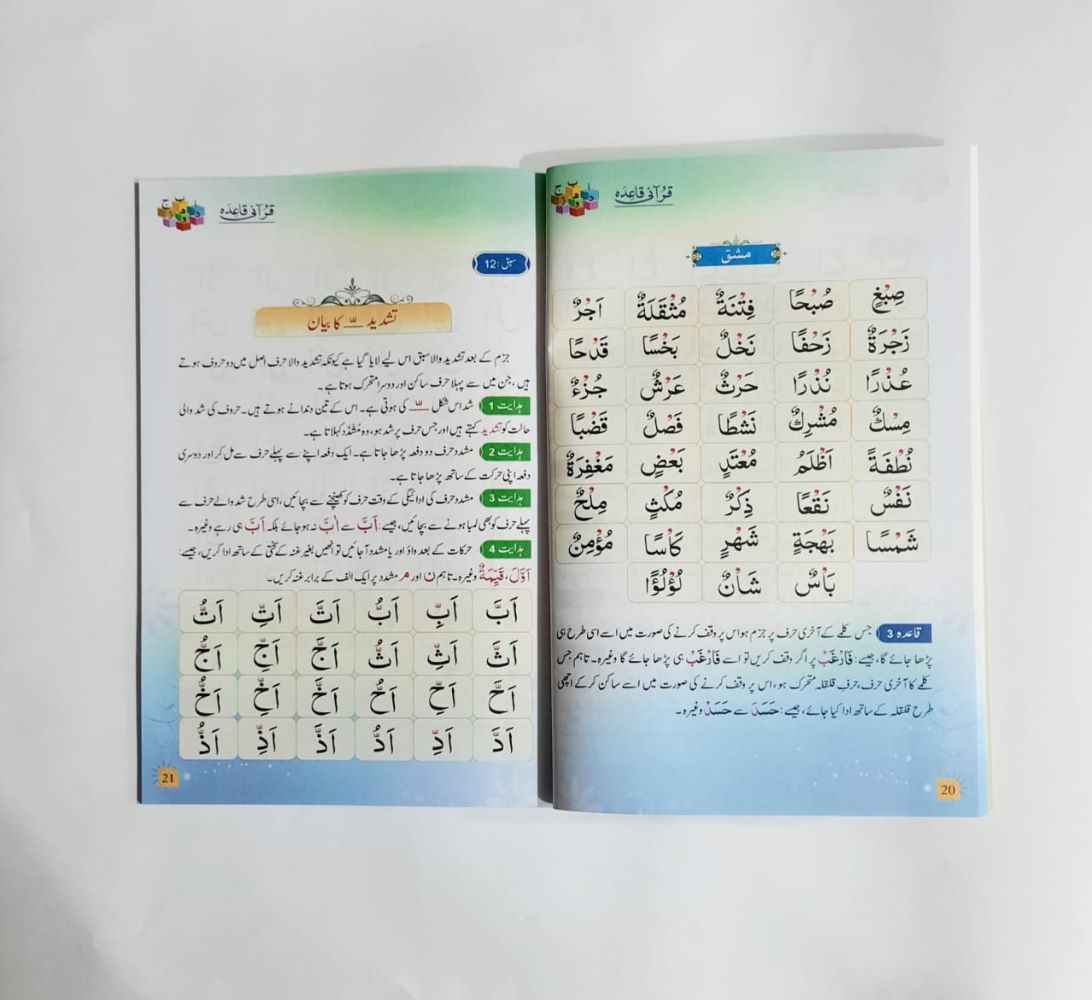 قرآنی قاعدہ
مشق
صِبْغٍ صُبْحًا فِتْنَةٌ مُثْقَلَةٌ اَجْرٌ
زَجْرَةٌ زَحْفًا نَخْلٌ بَخْسًا قَدْحًا
عُذْرًا نُذْرًا حَرْثٌ عَرْشٌ جُزْءٌ
مِسْكٌ مُشْرِكٌ نَشْطًا فَصْلٌ قَضْبًا
نُطْفَةً اَظْلَمُ مُعْتَدٍ بَعْضٍ مَغْفِرَةٌ
نَفْسٌ نَقْعًا ذِكْرٌ مُكْثٍ مِلْحٌ
شَمْسًا بَهْجَةٍ شَهْرٍ كَاْسًا مُؤْمِنٌ
بَاْسٌ شَاْنٌ لُؤْلُؤًا
قاعدہ 3 جس کلمے کے آخری حرف پر جزم ہو اس پر وقف کرنے کی صورت میں اسے اسی طرح ہی
پڑھا جائے گا، جیسے: فَارْغَبْ پر اگر وقف کریں تو اسے فَارْغَبْ ہی پڑھا جائے گا وغیرہ۔ تاہم جس
کلمے کا آخری حرف، حرفِ قلقلہ متحرک ہو، اس پر وقف کرنے کی صورت میں اسے ساکن کر کے اچھی
طرح قلقلہ کے ساتھ ادا کیا جائے، جیسے: حَسَدَ سے حَسَدْ وغیرہ۔
20
قرآنی قاعدہ
سبق :12
تشدید ـّـ کا بیان
جزم کے بعد تشدید والا سبق اس لیے لایا گیا ہے کیونکہ تشدید والا حرف اصل میں دو حروف ہوتے
ہیں، جن میں سے پہلا حرف ساکن اور دوسرا متحرک ہوتا ہے۔
ہدایت 1 شد اس شکل ـّـ کی ہوتی ہے۔ اس کے تین دندانے ہوتے ہیں۔ حروف کی شد والی
حالت کو تشدید کہتے ہیں اور جس حرف پر شد ہو، وہ مُشَدَّد کہلاتا ہے۔
ہدایت 2 مشدد حرف دو دفعہ پڑھا جاتا ہے۔ ایک دفعہ اپنے سے پہلے حرف سے مل کر اور دوسری
دفعہ اپنی حرکت کے ساتھ پڑھا جاتا ہے۔
ہدایت 3 مشدد حرف کی ادائیگی کے وقت حرف کو کھینچنے سے بچائیں، اسی طرح شد والے حرف سے
پہلے حرف کو بھی لمبا ہونے سے بچائیں، جیسے: اَبَّ سے اٰبَّ نہ ہو جائے بلکہ اَبَّ ہی رہے وغیرہ۔
ہدایت 4 حرکات کے بعد واؤ اور یا مشدد آ جائیں تو انھیں بغیر غنہ کے سختی کے ساتھ ادا کریں، جیسے:
اَوَّلَ، قَيِّمَةٌ وغیرہ۔ تاہم ن اور م مشدد پر ایک الف کے برابر غنہ کریں۔
اَبَّ اَبِّ اَبُّ اَتَّ اَتِّ اَتُّ
اَثَّ اَثِّ اَثُّ اَجَّ اَجِّ اَجُّ
اَحَّ اَحِّ اَحُّ اَخَّ اَخِّ اَخُّ
اَدَّ اَدِّ اَدُّ اَذَّ اَذِّ اَذُّ
21